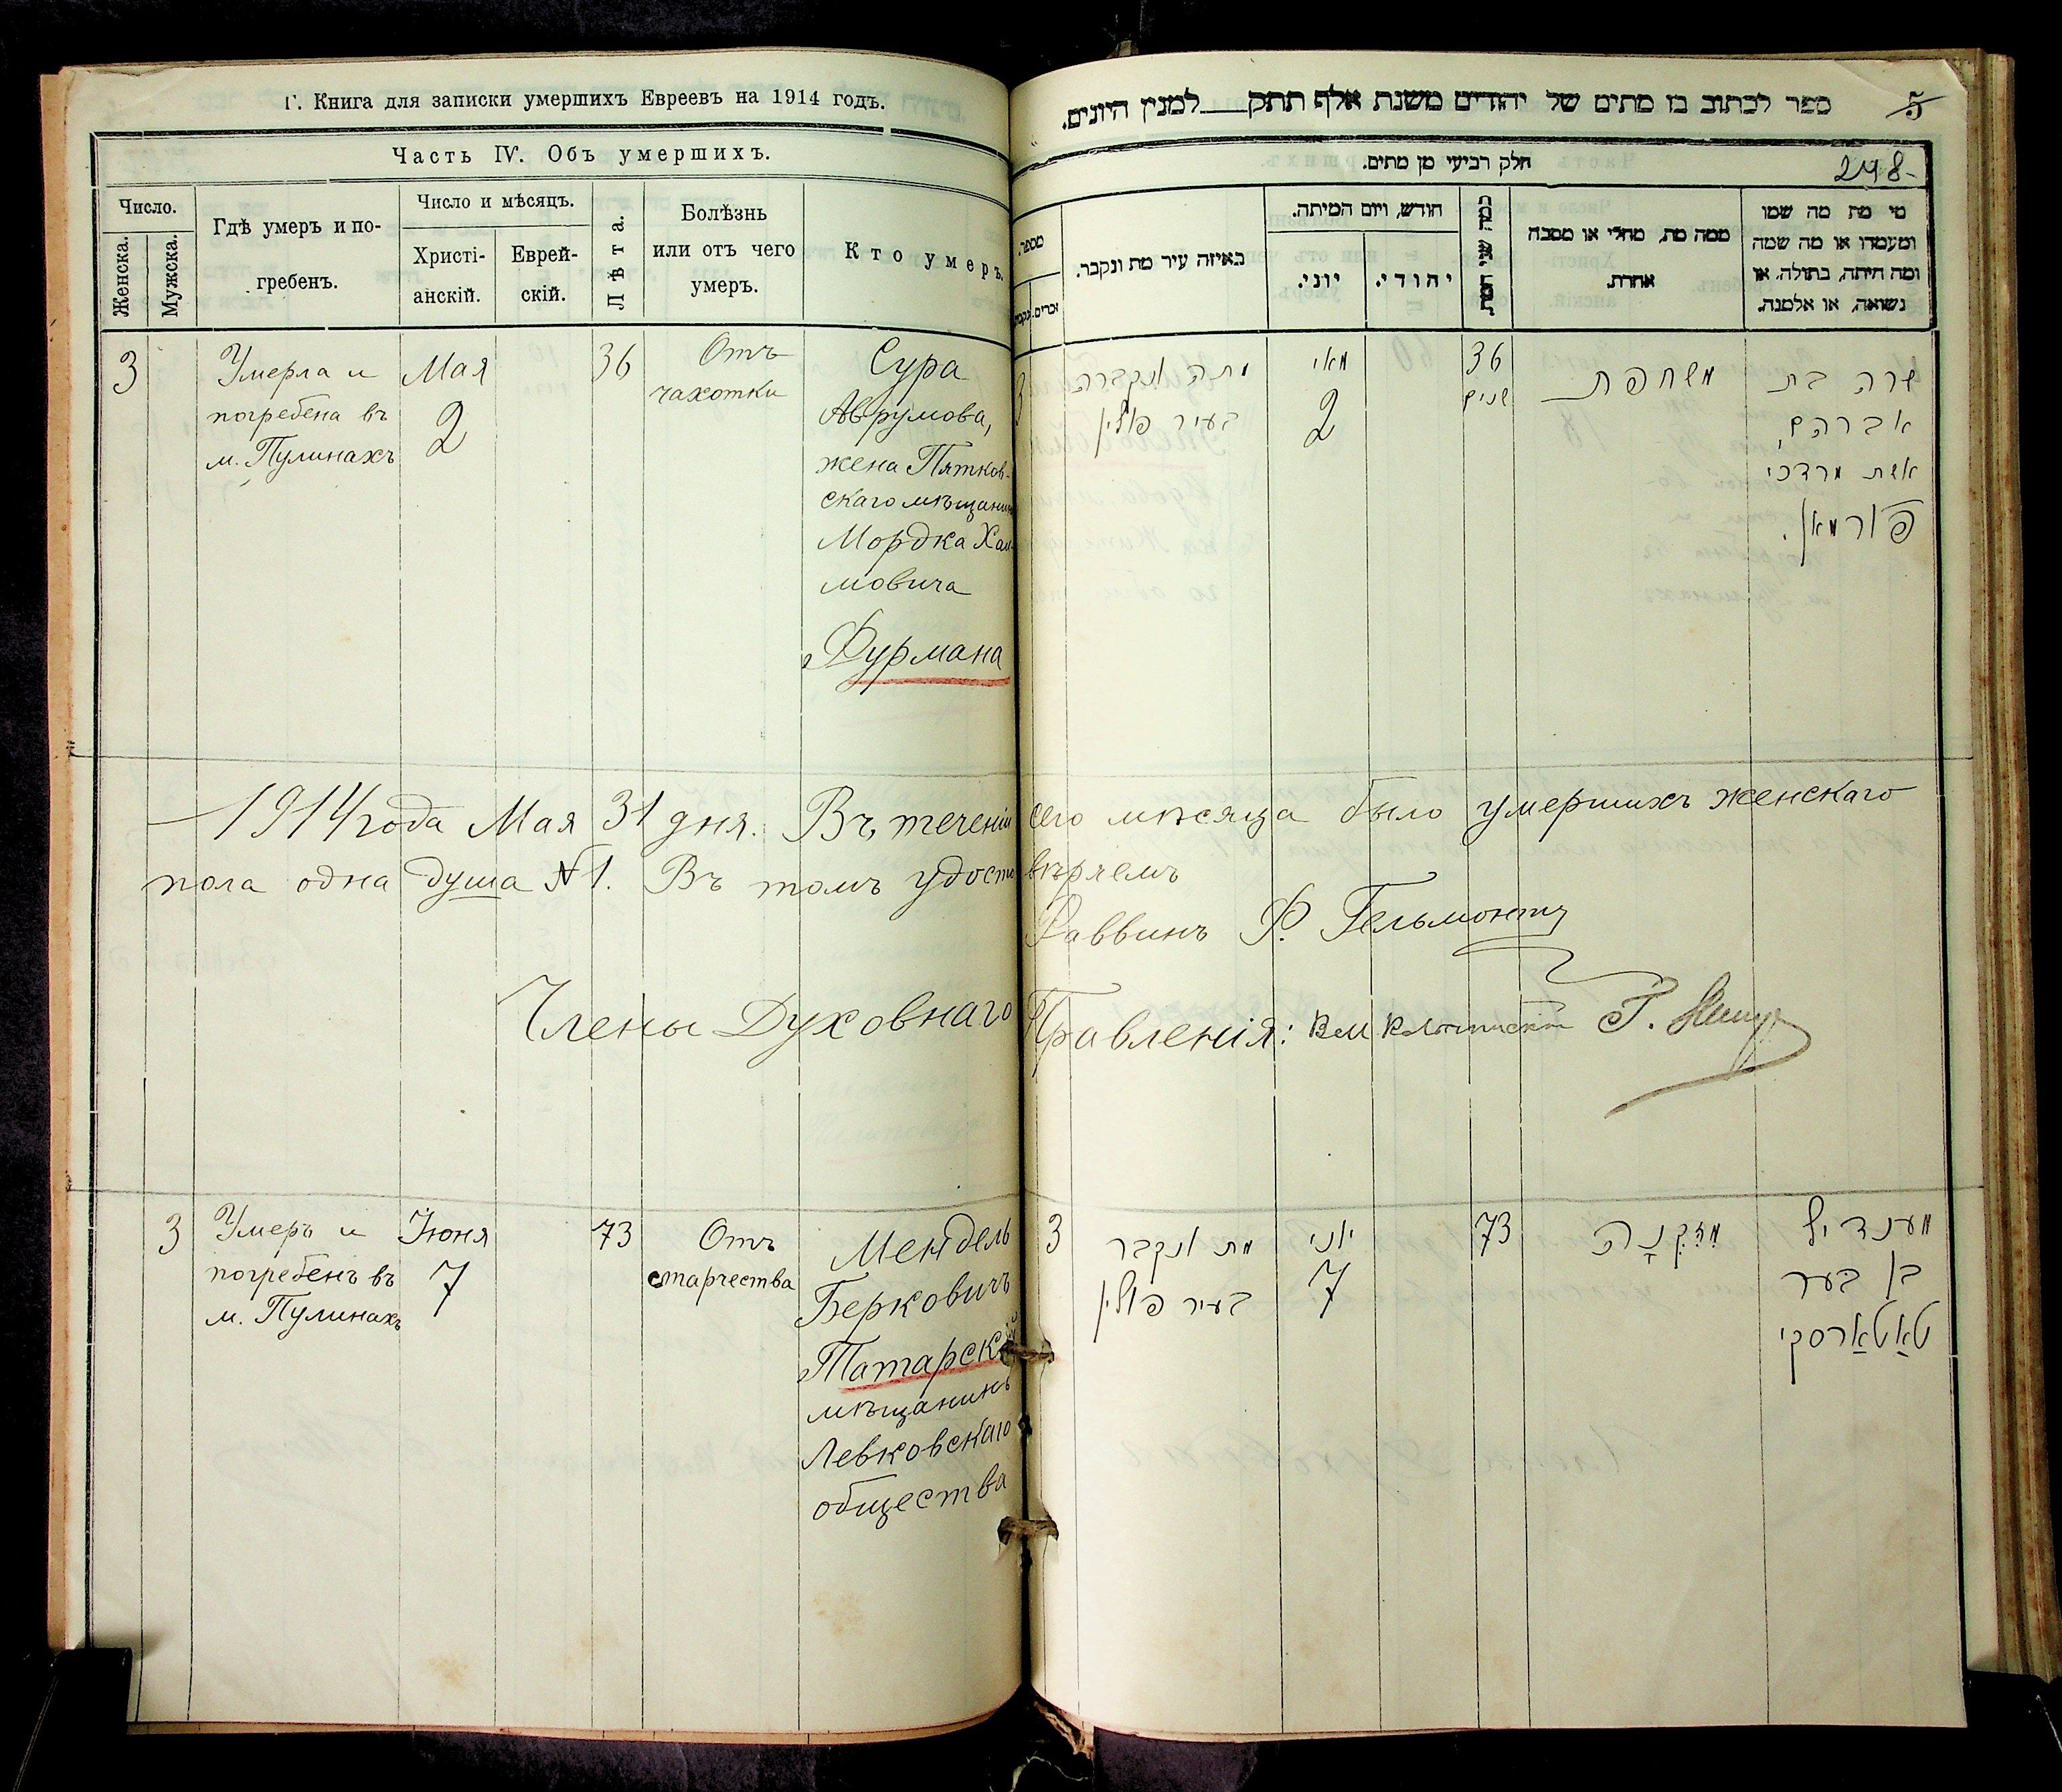 Г. Книга для записки умершихъ Евреевъ на 1914 годъ.
Часть IV. Объ умершихъ.
Число.
Женска.
Мужска.
Гдѣ умеръ и по-
гребенъ.
Число и мѣсяцъ.
Христі-
анскій.
Еврей-
скій.
Лѣта.
Болѣзнь
или отъ чего
умеръ.
Кто умеръ.
3
Умерла и
погребена въ
м. Пулинахъ
Мая
2
36
Отъ
чахотки
Сура
Аврумова,
жена Пятков-
скаго мѣщанина
Мордка Хаи-
мовича
Фурмана
1914 года Мая 31 дня. Въ теченіи сего мѣсяца было умершихъ женскаго
пола одна душа № 1. Въ томъ удостовѣряемъ
Раввинъ Ф. Гельмонтъ
Члены Духовнаго Правленія:
3
Умеръ и
погребенъ въ
м. Пулинахъ
Іюня
7
73
Отъ
старчества
Мендель
Берковичъ
Татарскій
мѣщанинъ
Левковскаго
общества
ספר לכתוב בו מתים של יהודים משנת אלף תתק למנין היונים.
5
חלק רביעי מן מתים.
248-
מי מת מה שמו
ומעמדו או מה שמה
ומה היתה, בתולה, או
נשואה, או אלמנה.
ממה מת, מחלי או מסבה
אחרת.
כמה שני המת
חודש, ויום המיתה.
יהודי.
יוני.
באיזה עיר מת ונקבר.
מספר.
זכרים.
נקבות
שרה בת
אברהם,
אשת מרדכי
פורמאן.
משחפת
36
שנים
מאי
2
מתה ונקברה
בעיר פולין
3
מענדיל
בן בער
טאַטאַרסקי
מִזִקְנָה
73
יוני
7
מת ונקבר
בעיר פולין
3